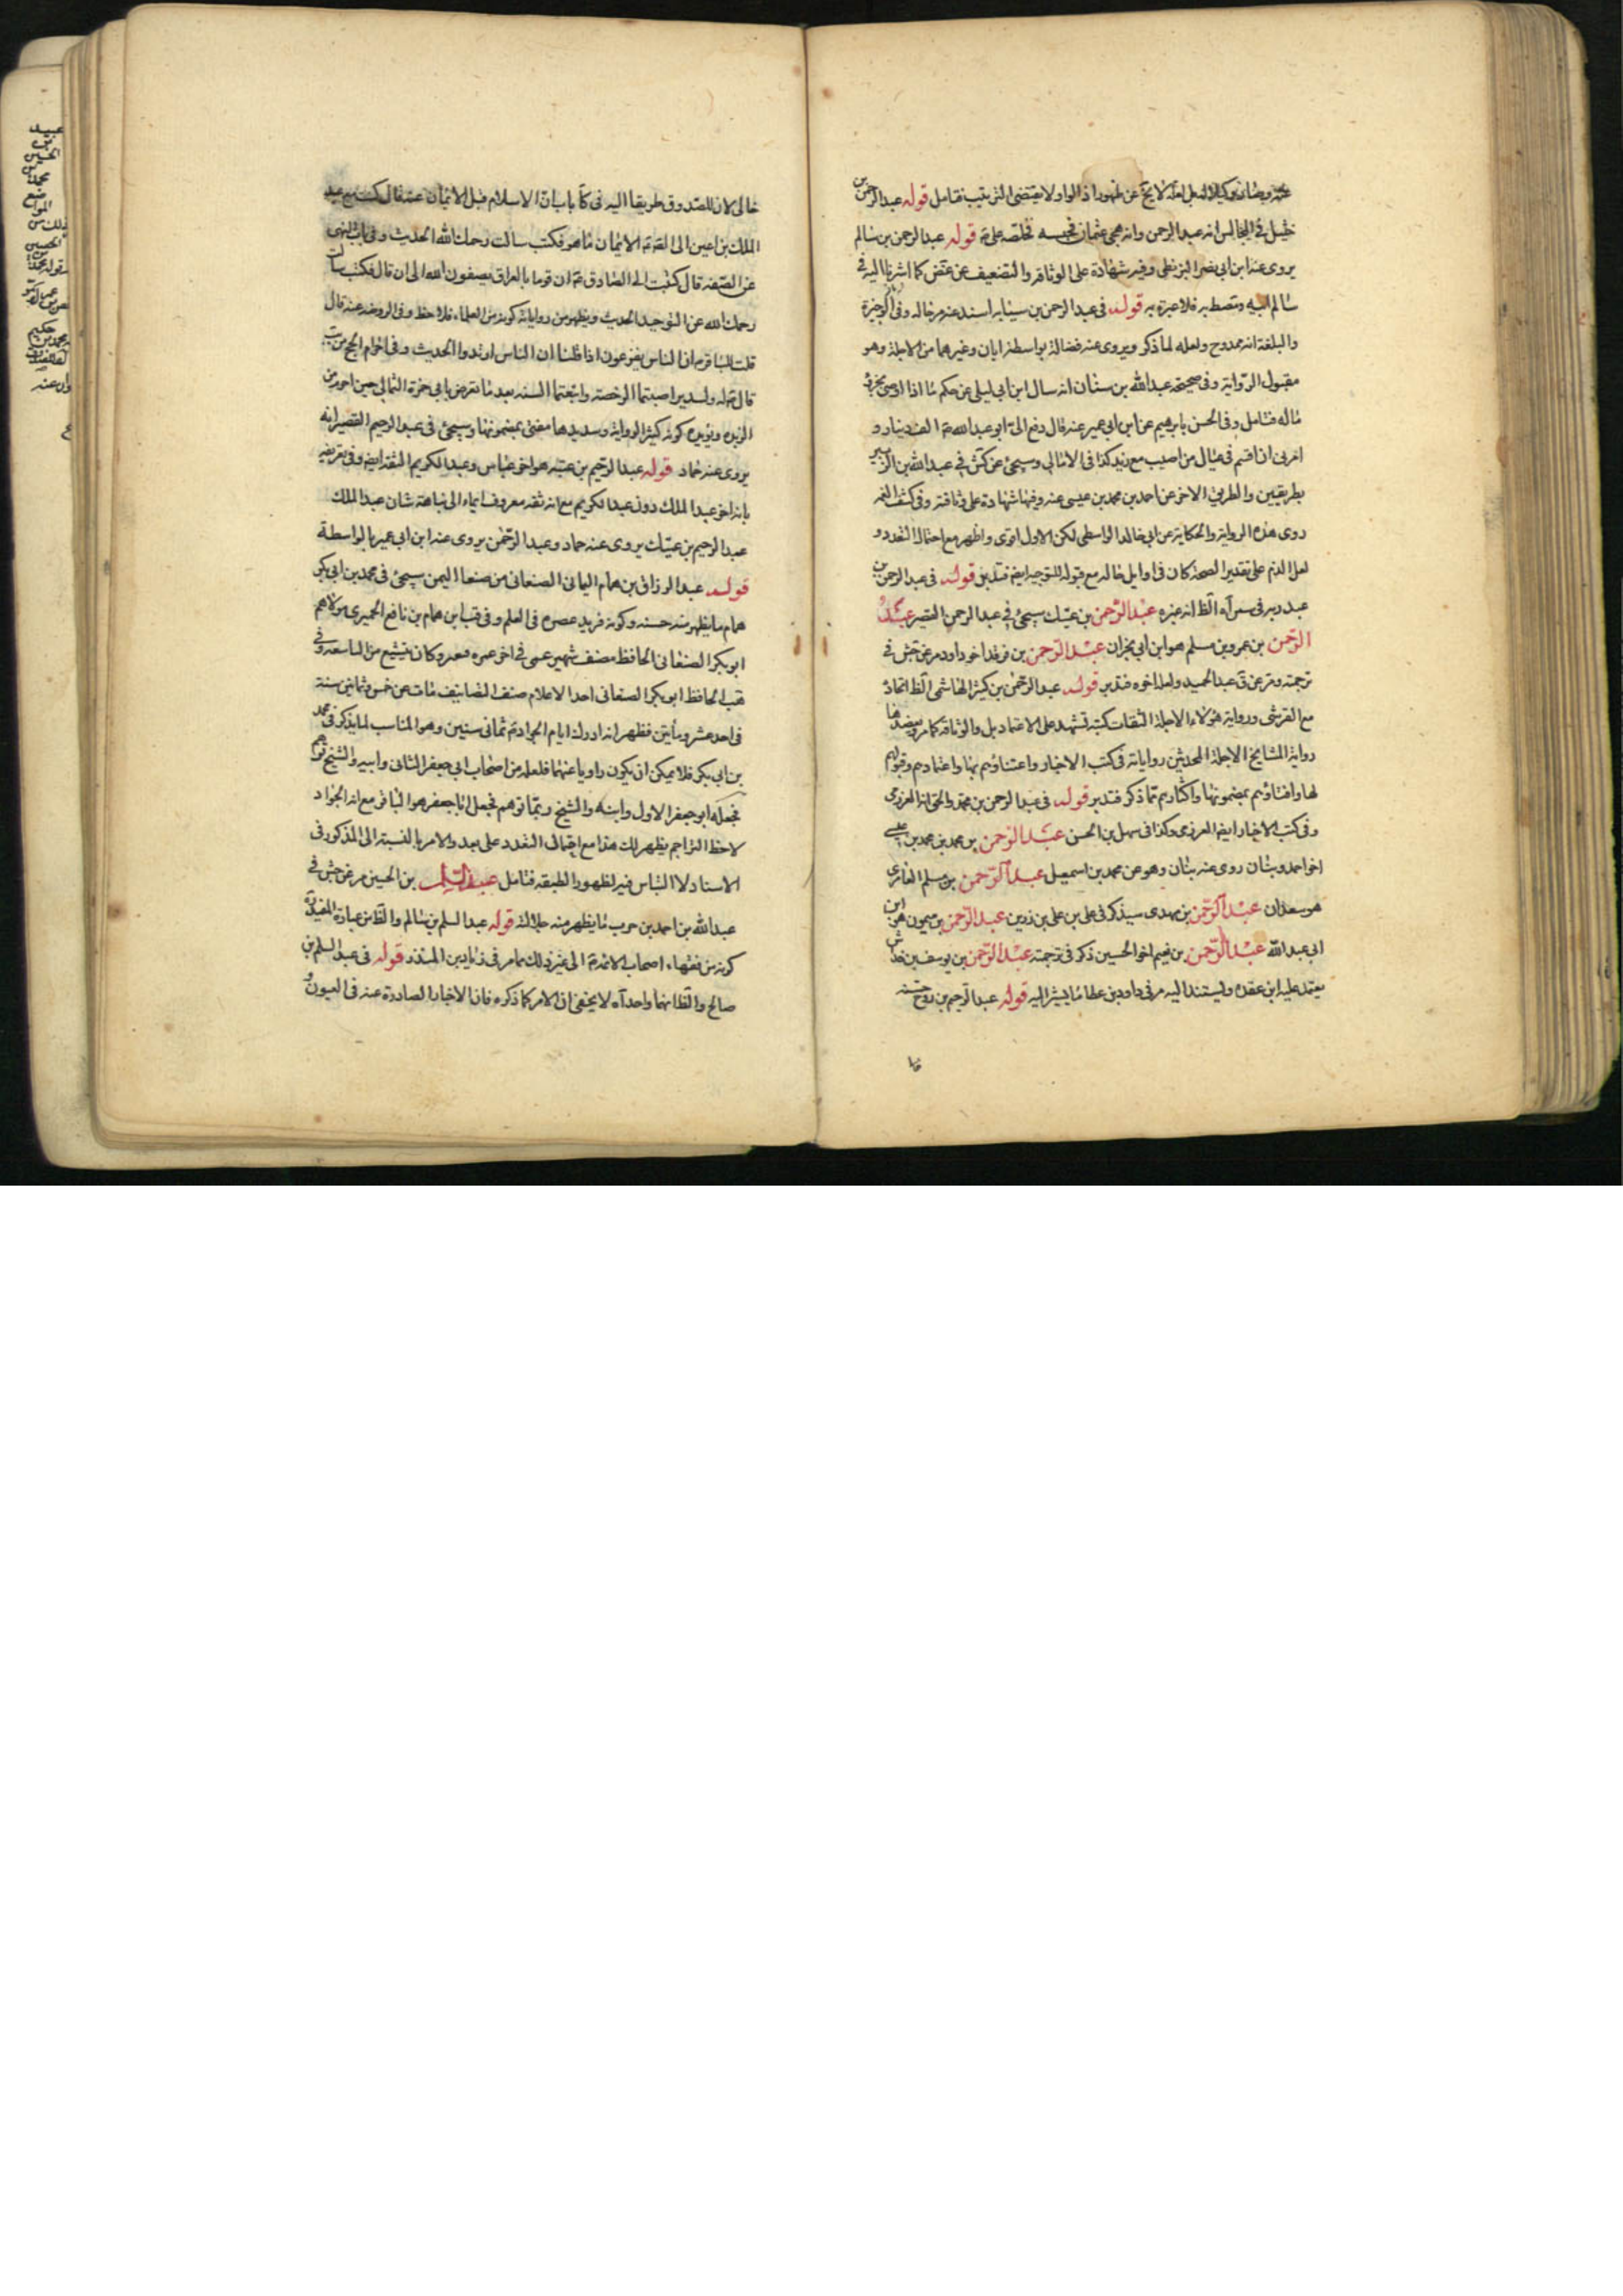 عبد الرحمن وانه هجى عثمان فحبسه فخلصه علي ع قوله عبد الرحمن بن سالم
يروى عنه ابن ابى نصر البزنطى وفيه شهادة على الوثاقة والتضعيف عن غض كما اشرنا اليه في
سالم ابيه فلا عبرة به قوله في عبد الرحمن بن سيابه اسند عنه مر فى خاله وفى الوجيزة
والبلغة انه ممدوح ولعله لما ذكر ويروى عنه فضالة بواسطة ابان وغيرهما من الاجلة وهو
مقبول الرواية وفى صحيحة عبد الله بن سنان انه سال ابن ابى ليلى عن حكم ما اذا اوصى بجزء
ماله فتامل وفى الحسن بابرهيم عن ابن ابى عمير عنه قال دفع الى ابو عبد الله ع الف دينار و
امرنى ان اقسم فى عيال من اصيب مع زيد كذا فى الامالى وسيجئ عن كش في عبد الله بن الزبير
بطريقين والطريق الاخر عن احمد بن محمد بن عيسى عنه وفيها شهادة على وثاقته وفى كشف الغمه
روى هذه الرواية والحكاية عن ابى خالد الواسطى لكن الاول اقوى واظهر مع احتمال التعدد و
لعل الذم على تقدير الصحة كان فى اوايل حاله مع قوله للتوجيه ايضا فتدبر قوله فى عبد الرحمن بن
عبد ربه فى سن آه الظ انه غيره عبد الرحمن بن عتيك سيجئ في عبد الرحمن القصير عبد
الرحمن بن عمرو بن مسلم هو ابن ابى نجران عبد الرحمن بن فرقد اخو داود مر عن جش في
ترجمته ومر عن ق عبد الحميد ولعله اخوه فتدبر قوله عبد الرحمن بن كثير الهاشمى الظ اتحاد
مع القرشى ورواية هؤلاء الاجلة الثقات كتبه تشهد على الاعتماد بل والوثاقة كما مر ويعضدها
رواية المشايخ الاجلة المحدثين رواياته فى كتب الاخبار واعتناؤهم بها واعتمادهم وقبولهم
لها وافتاؤهم بمضمونها واكثارهم مما ذكر فتدبر قوله فى عبد الرحمن بن محمد والحق انه العرزمى
وفى كتب الاخبار ايضا العرزمى وكذا فى سهل بن الحسن عبد الرحمن بن محمد بن محمد بن عيسى
اخو احمد وبنان روى عنه بنان وهو عن محمد بن اسمعيل عبد الرحمن بن مسلم العامرى
هو سعدان عبد الرحمن بن مهدى سيذكر فى على بن على بن رزين عبد الرحمن بن ميمون هو ابن
ابى عبد الله عبد الرحمن بن نعيم اخو الحسين ذكر فى ترجمته عبد الرحمن بن يوسف بن خداش
يعتمد عليه ابن عقده ويستند اليه مر فى داود بن عطا ما يشير اليه قوله عبد الرحيم بن روح حسنه
خالى لان للصدوق طريقا اليه فى كا باب ان الاسلام قبل الايمان عنه قال كتبت مع عبد
الملك بن اعين الى الصادق ع الايمان ما هو فكتب سالت رحمك الله الحديث وفى باب النهى
عن الصفه قال كتبت الى الصادق ع ان قوما بالعراق يصفون الله الى ان قال فكتب سالت
رحمك الله عن التوحيد الحديث ويظهر من رواياته كونه من العلماء فلاحظ وفى الروضه عنه قال
قلت للباقر ع ان الناس يفزعون اذا قلنا ان الناس ارتدوا الحديث وفى احرام الحج من يب
قال ع له ولسدير اصبتما الرخصة واتبعتما السنه بعد ما تعرض بابى حمزة الثمالى حين احرم من
الربذه ويؤيده كونه كثير الرواية وسديدها مفتى بمضمونها وسيجئ فى عبد الرحيم القصير انه
يروى عنه حماد قوله عبد الرحيم بن عتبه هو اخو عباس وعبد الكريم الثقة ايضا وفى تعريفه
بانه اخو عبد الملك دون عبد الكريم مع انه ثقه معروف ايماء الى نباهة شان عبد الملك
عبد الرحيم بن عتيك يروى عنه حماد وعبد الرحمن يروى عنه ابن ابى عمير بالواسطة
قوله عبد الرزاق بن همام اليمانى الصنعانى من صنعا اليمن سيجئ فى محمد بن ابى بكر
همام ما يظهر منه حسنه وكونه فريد عصره فى العلم وفى قب ابن همام بن نافع الحميرى مولاهم
ابو بكر الصنعانى الحافظ مصنف شهير عمى فى اخر عمره فتغير وكان يتشيع من التاسعه وفى
هب الحافظ ابو بكر الصنعانى احد الاعلام صنف التصانيف مات عن خمس وثمانين سنة
فى احد عشر ومأتين فظهر انه ادرك ايام الجواد ع ثمانى سنين وهو المناسب لما يذكر فى محمد
بن ابى بكر فلا يمكن ان يكون راويا عنهما فلعله من اصحاب ابى جعفر الثانى وابيه والشيخ توهم
فجعله ابو جعفر الاول وابنه والشيخ ربما توهم فجعل ابا جعفر هو الباقر مع انه الجواد
لاحظ التراجم يظهر لك هذا مع احتمال التعدد على بعد والامر بالنسبة الى المذكور فى
الاسناد لا التباس فيه لظهور الطبقه فتامل عبد السلام بن الحسين مر عن جش في
عبد الله بن احمد بن حرب ما يظهر منه جلالته قوله عبد السلم بن سالم والظ من عبارة المفيد
كونه من فقهاء اصحاب الائمة ع الى غير ذلك مما مر فى زياد بن المنذر قوله فى عبد السلم بن
صالح والظ انهما واحد آه لا يخفى ان الامر كما ذكره فان الاخبار الصادرة عنه فى العيون